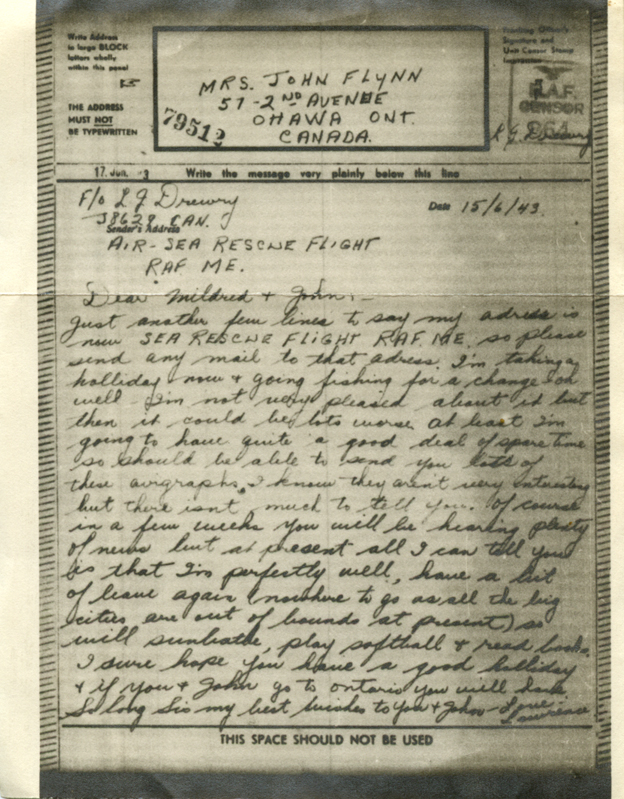 Write Address
in large BLOCK
letters wholly
within this panel
THE ADDRESS
MUST NOT
BE TYPEWRITTEN
MRS. JOHN FLYNN
57-2ND AVENUE
OTTAWA ONT.
CANADA.
79512
Signature and
Unit Censor Stamp
R.A.F.
CENSOR
17. JUN. 3 Write the message very plainly below this line
F/o L G Drewry
J8629 CAN.
Sender's Address
AIR-SEA RESCUE FLIGHT
RAF ME.
Date 15/6/43.
Dear Mildred & John:-
Just another few lines to say my adress is
now SEA RESCUE FLIGHT RAF ME. so please
send any mail to that adress. I'm taking a
holliday now & going fishing for a change oh
well I'm not very pleased about it but
then it could be lots worse at least I'm
going to have quite a good deal of spare time
so should be able to send you lots of
these airgraphs. I know they aren't very interesting
but there isnt much to tell you. Of course
in a few weeks you will be hearing plenty
of news but at present all I can tell you
is that I'm perfectly well, have a bit
of leave again (nowhere to go as all the big
cities are out of bounds at present) so
will sunbathe, play softball & read books.
I sure hope you have a good holliday
& if you & John go to ontario you will
So long Sis my best wishes to you & John - Love
Lawrence
THIS SPACE SHOULD NOT BE USED